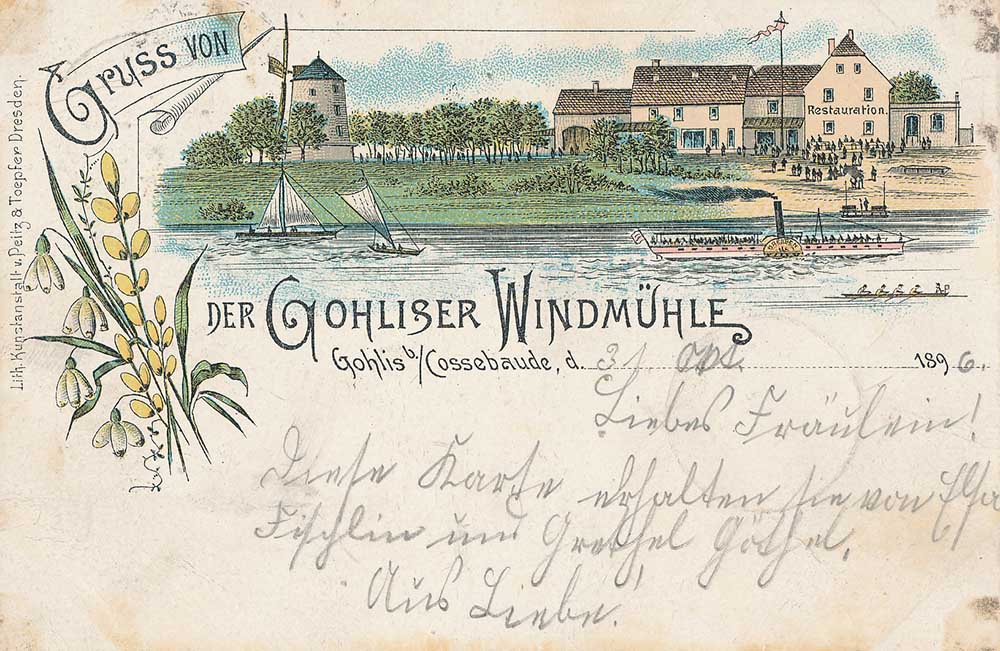 GRUSS VON
DER GOHLISER WINDMÜHLE
Restauration.
Lith. Kunstanstalt v. Peitz & Toepfer Dresden.
Gohlis b/Cossebaude, d. 31 1896.
Liebes Fräulein!
Diese Karte erhalten sie von Elsa
Fischlin und Grethel Göthel.
Aus Liebe!